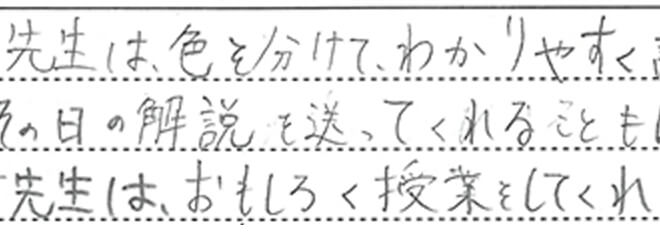 先生は、色を分けて、わかりやすく
その日の解説を送ってくれることも
先生は、おもしろく授業をしてくれ